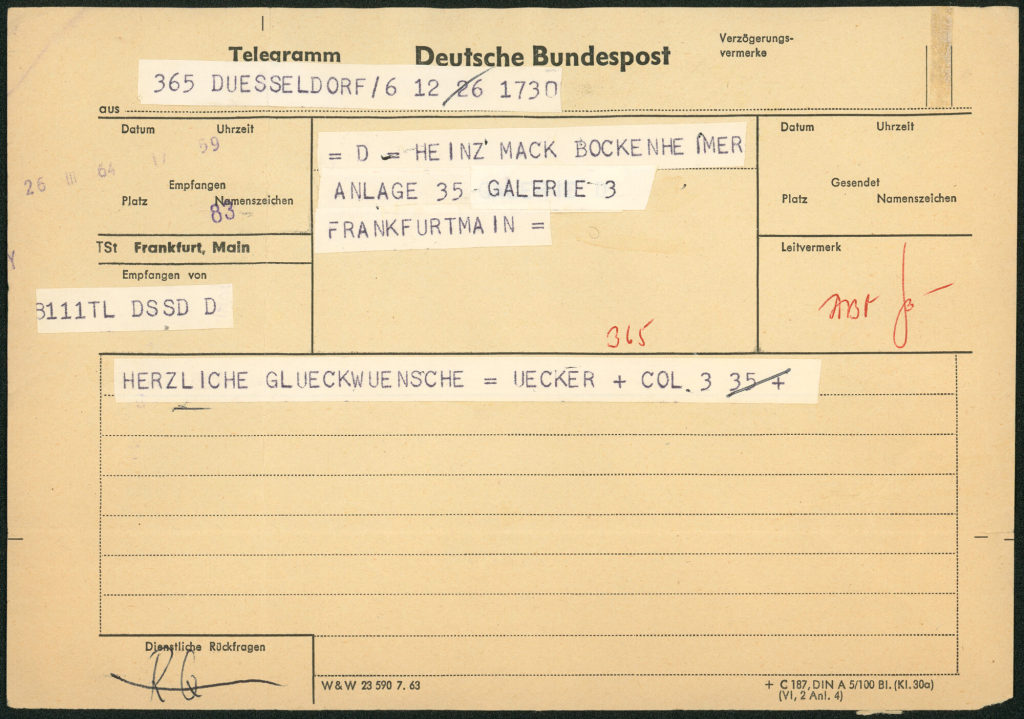 Telegramm Deutsche Bundespost Verzögerungs-
vermerke
365 DUESSELDORF/6 12 26 1730
aus
Datum Uhrzeit
26 III 64 17 59
Empfangen
Platz Namenszeichen
83
TSt Frankfurt, Main
Empfangen von
8111TL DSSD D
= D = HEINZ MACK BOCKENHEIMER
ANLAGE 35 GALERIE 3
FRANKFURTMAIN =
365
Datum Uhrzeit
Gesendet
Platz Namenszeichen
Leitvermerk
HERZLICHE GLUECKWUENSCHE = UECKER + COL. 3 35 +
Dienstliche Rückfragen
W&W 23 590 7. 63
+ C 187, DIN A 5/100 Bl. (Kl. 30a)
(VI, 2 Anl. 4)